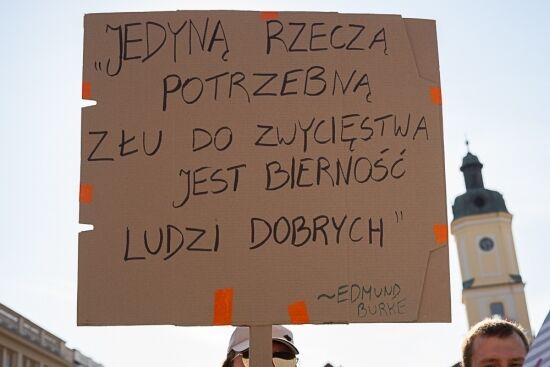 „JEDYNĄ RZECZĄ
POTRZEBNĄ
ZŁU DO ZWYCIĘSTWA
JEST BIERNOŚĆ
LUDZI DOBRYCH"
~EDMUND
BURKE